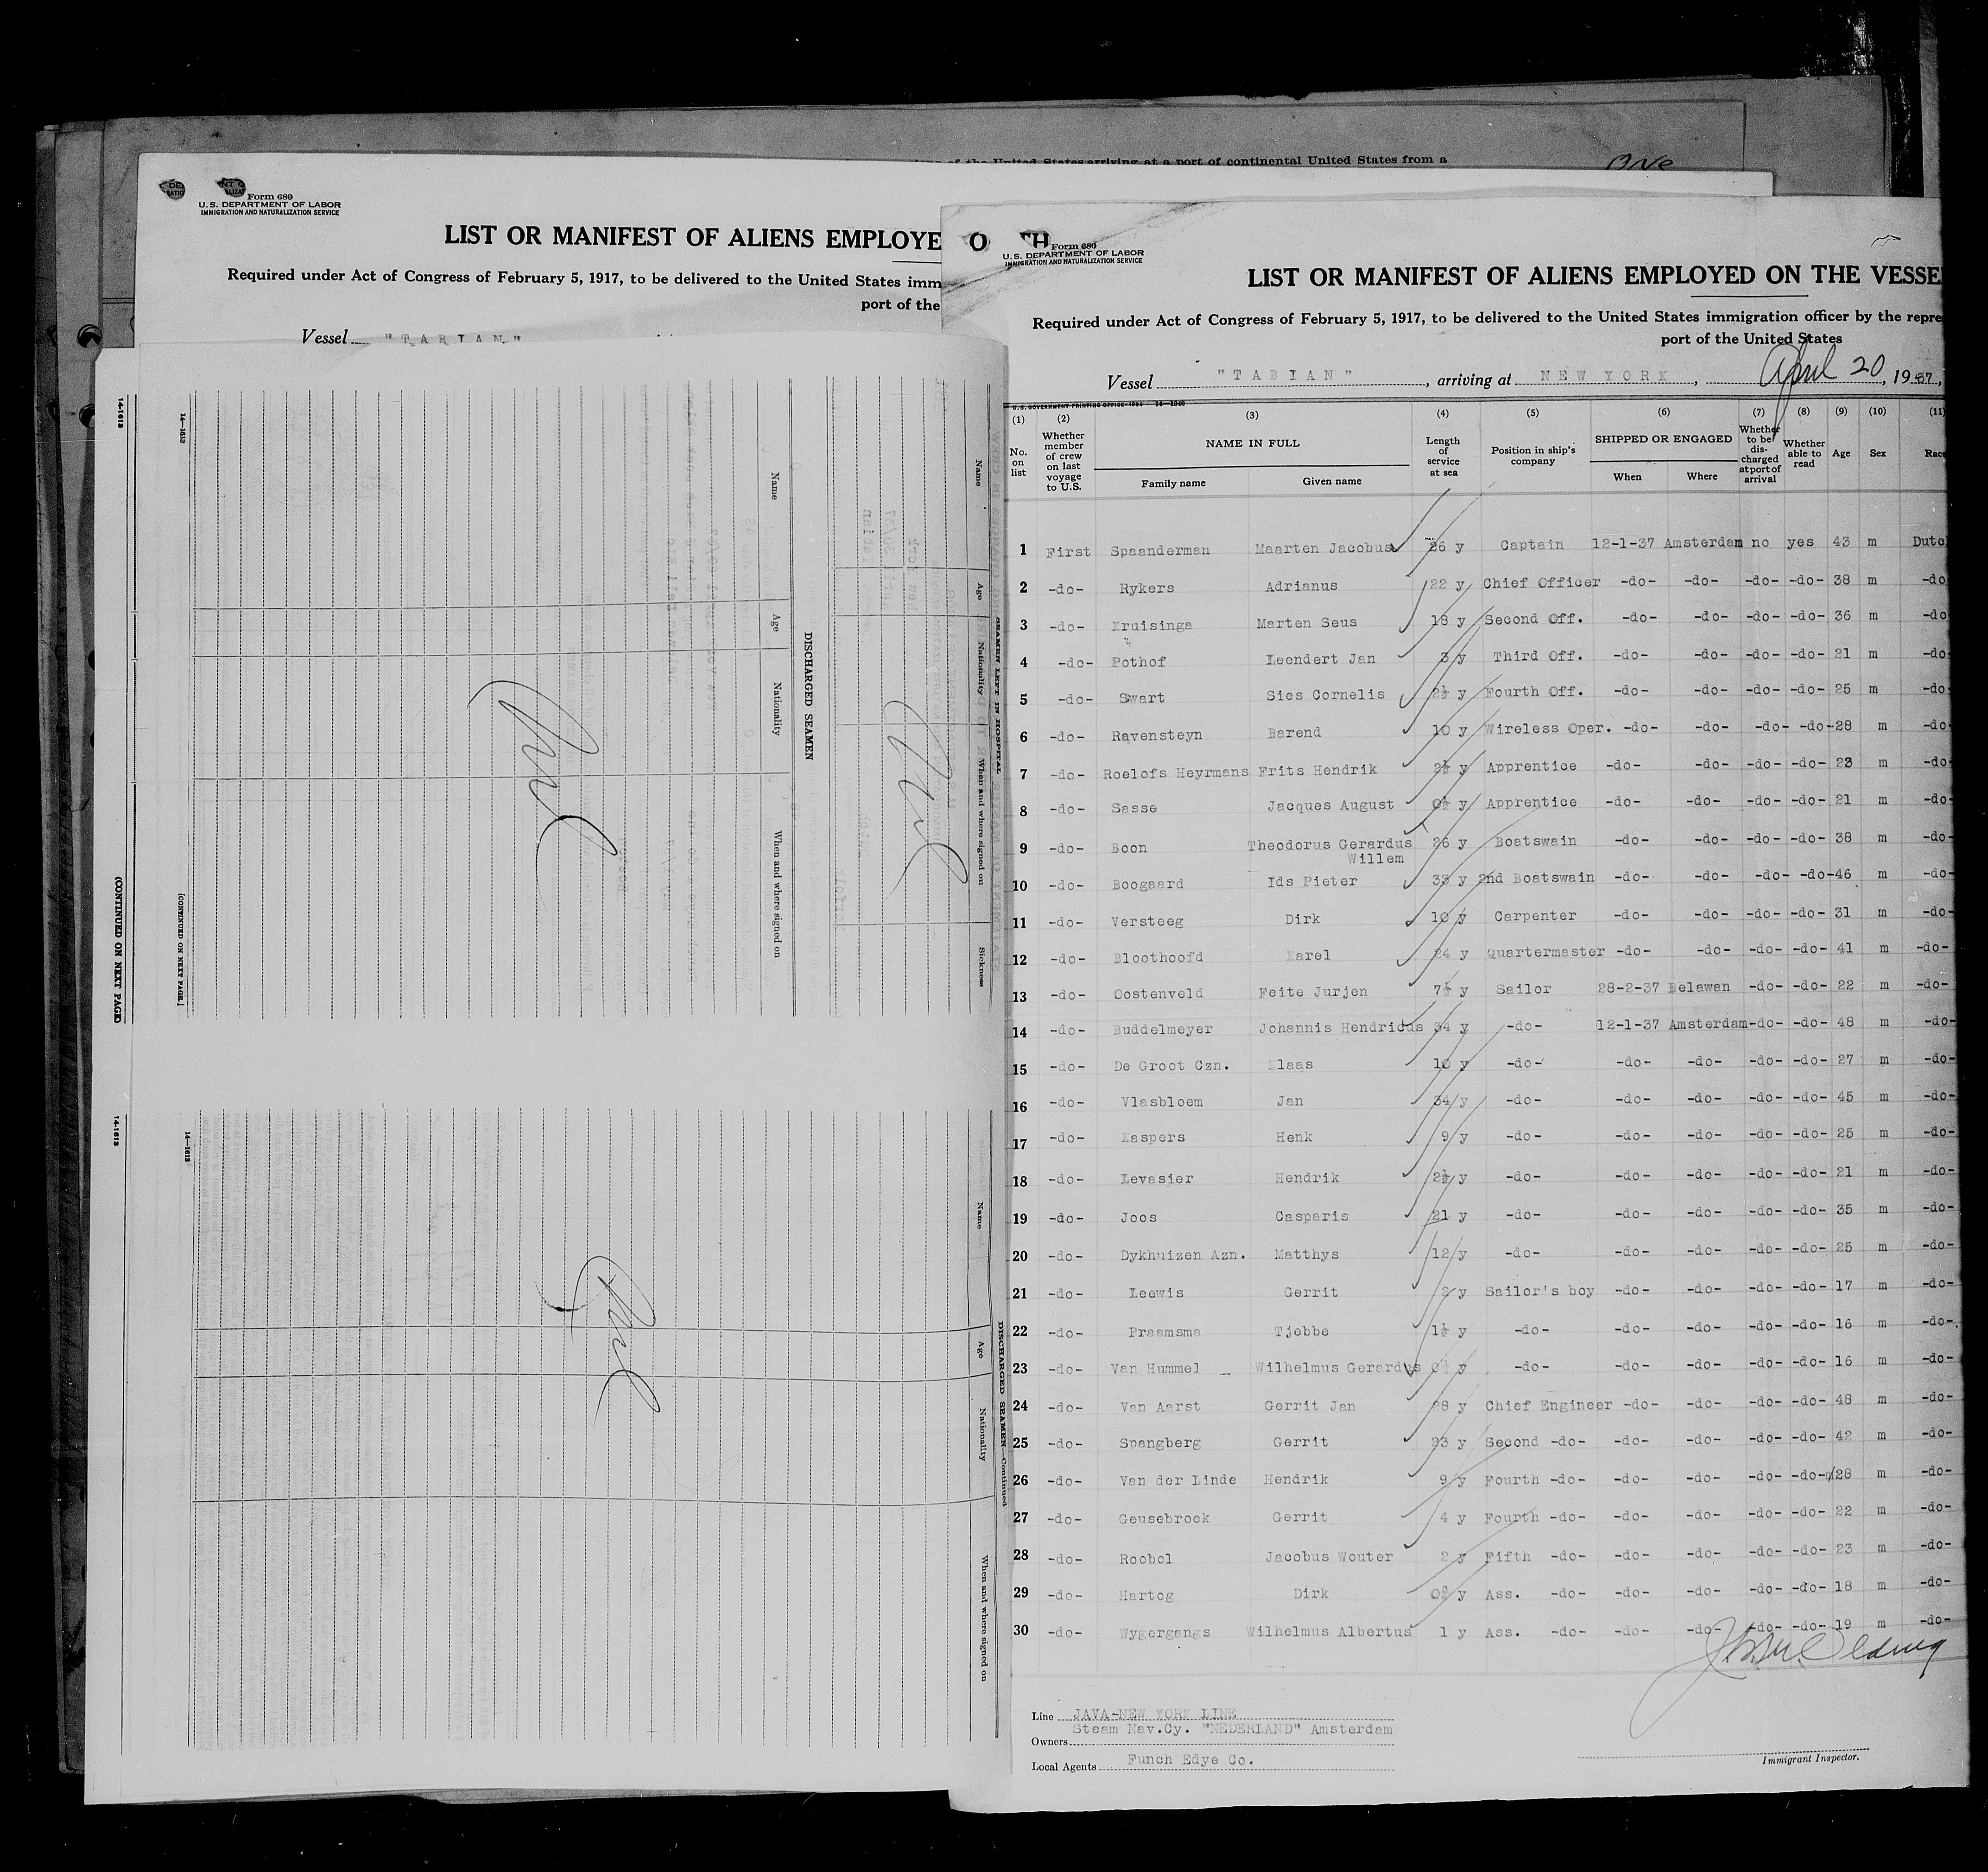 of the United States arriving at a port of continental United States from a
one
Form 680
U.S. DEPARTMENT OF LABOR
IMMIGRATION AND NATURALIZATION SERVICE
LIST OR MANIFEST OF ALIENS EMPLOYE
Required under Act of Congress of February 5, 1917, to be delivered to the United States imm
port of the
Vessel "TABIAN"
14-1613
(CONTINUED ON NEXT PAGE)
14-1613
[CONTINUED ON NEXT PAGE]
Name Age Nationality When and where signed on
DISCHARGED SEAMEN
Name Age Nationality When and where signed on Sickness
SEAMEN LEFT IN HOSPITAL
14-1613
14-1613
Name Age Nationality When and where signed on
DISCHARGED SEAMEN—Continued
Form 680
U.S. DEPARTMENT OF LABOR
IMMIGRATION AND NATURALIZATION SERVICE
LIST OR MANIFEST OF ALIENS EMPLOYED ON THE VESSE
Required under Act of Congress of February 5, 1917, to be delivered to the United States immigration officer by the repre
port of the United States
Vessel "TABIAN", arriving at NEW YORK, April 20, 1937,
U.S. GOVERNMENT PRINTING OFFICE
(1) (2) (3) (4) (5) (6) (7) (8) (9) (10) (11)
No. on list Whether member of crew on last voyage to U.S. NAME IN FULL Family name Given name Length of service at sea Position in ship's company SHIPPED OR ENGAGED When Where Whether to be discharged at port of arrival Whether able to read Age Sex Race
1 First Spaanderman Maarten Jacobus 26 y Captain 12-1-37 Amsterdam no yes 43 m Dutc
2 -do- Rykers Adrianus 22 y Chief Officer -do- -do- -do- -do- 38 m -do
3 -do- Kruisinga Marten Seus 18 y Second Off. -do- -do- -do- -do- 36 m -do
4 -do- Pothof Leendert Jan 3 y Third Off. -do- -do- -do- -do- 21 m -do
5 -do- Swart Sies Cornelis 2½ y Fourth Off. -do- -do- -do- -do- 25 m -do
6 -do- Ravensteyn Barend 10 y Wireless Oper. -do- -do- -do- -do- 28 m -do
7 -do- Roelofs Heyrmans Frits Hendrik 2½ y Apprentice -do- -do- -do- -do- 23 m -do
8 -do- Sasse Jacques August 0½ y Apprentice -do- -do- -do- -do- 21 m -do-
9 -do- Boon Theodorus Gerardus 26 y Boatswain -do- -do- -do- -do- 38 m -do-
Willem
10 -do- Boogaard Ids Pieter 33 y 2nd Boatswain -do- -do- -do- -do- 46 m -do-
11 -do- Versteeg Dirk 10 y Carpenter -do- -do- -do- -do- 31 m -do-
12 -do- Bloothoofd Karel 24 y Quartermaster -do- -do- -do- -do- 41 m -do-
13 -do- Oostenveld Feite Jurjen 7½ y Sailor 28-2-37 Belawan -do- -do- 22 m -do-
14 -do- Buddelmeyer Johannis Hendricus 34 y -do- 12-1-37 Amsterdam -do- -do- 48 m -do-
15 -do- De Groot Czn. Klaas 10 y -do- -do- -do- -do- -do- 27 m -do-
16 -do- Vlasbloem Jan 34 y -do- -do- -do- -do- -do- 45 m -do-
17 -do- Kaspers Henk 9 y -do- -do- -do- -do- -do- 25 m -do-
18 -do- Levasier Hendrik 2½ y -do- -do- -do- -do- -do- 21 m -do-
19 -do- Joos Casparis 21 y -do- -do- -do- -do- -do- 35 m -do-
20 -do- Dykhuizen Azn. Matthys 12 y -do- -do- -do- -do- -do- 25 m -do-
21 -do- Leewis Gerrit 2 y Sailor's boy -do- -do- -do- -do- 17 m -do-
22 -do- Praamsma Tjebbe 1½ y -do- -do- -do- -do- -do- 16 m -do-
23 -do- Van Hummel Wilhelmus Gerardus y -do- -do- -do- -do- -do- 16 m -do-
24 -do- Van Aarst Gerrit Jan 28 y Chief Engineer -do- -do- -do- -do- 48 m -do-
25 -do- Spangberg Gerrit 23 y Second -do- -do- -do- -do- -do- 42 m -do-
26 -do- Van der Linde Hendrik 9 y Fourth -do- -do- -do- -do- -do- 28 m -do-
27 -do- Geusebroek Gerrit 4 y Fourth -do- -do- -do- -do- -do- 22 m -do-
28 -do- Roobol Jacobus Wouter 2 y Fifth -do- -do- -do- -do- -do- 23 m -do-
29 -do- Hartog Dirk y Ass. -do- -do- -do- -do- -do- 18 m -do-
30 -do- Wygergangs Wilhelmus Albertus 1 y Ass. -do- -do- -do- -do- -do- 19 m -do-
Line JAVA-NEW YORK LINE
Steam Nav.Cy. "NEDERLAND" Amsterdam
Owners
Local Agents Funch Edye Co.
Immigrant Inspector.